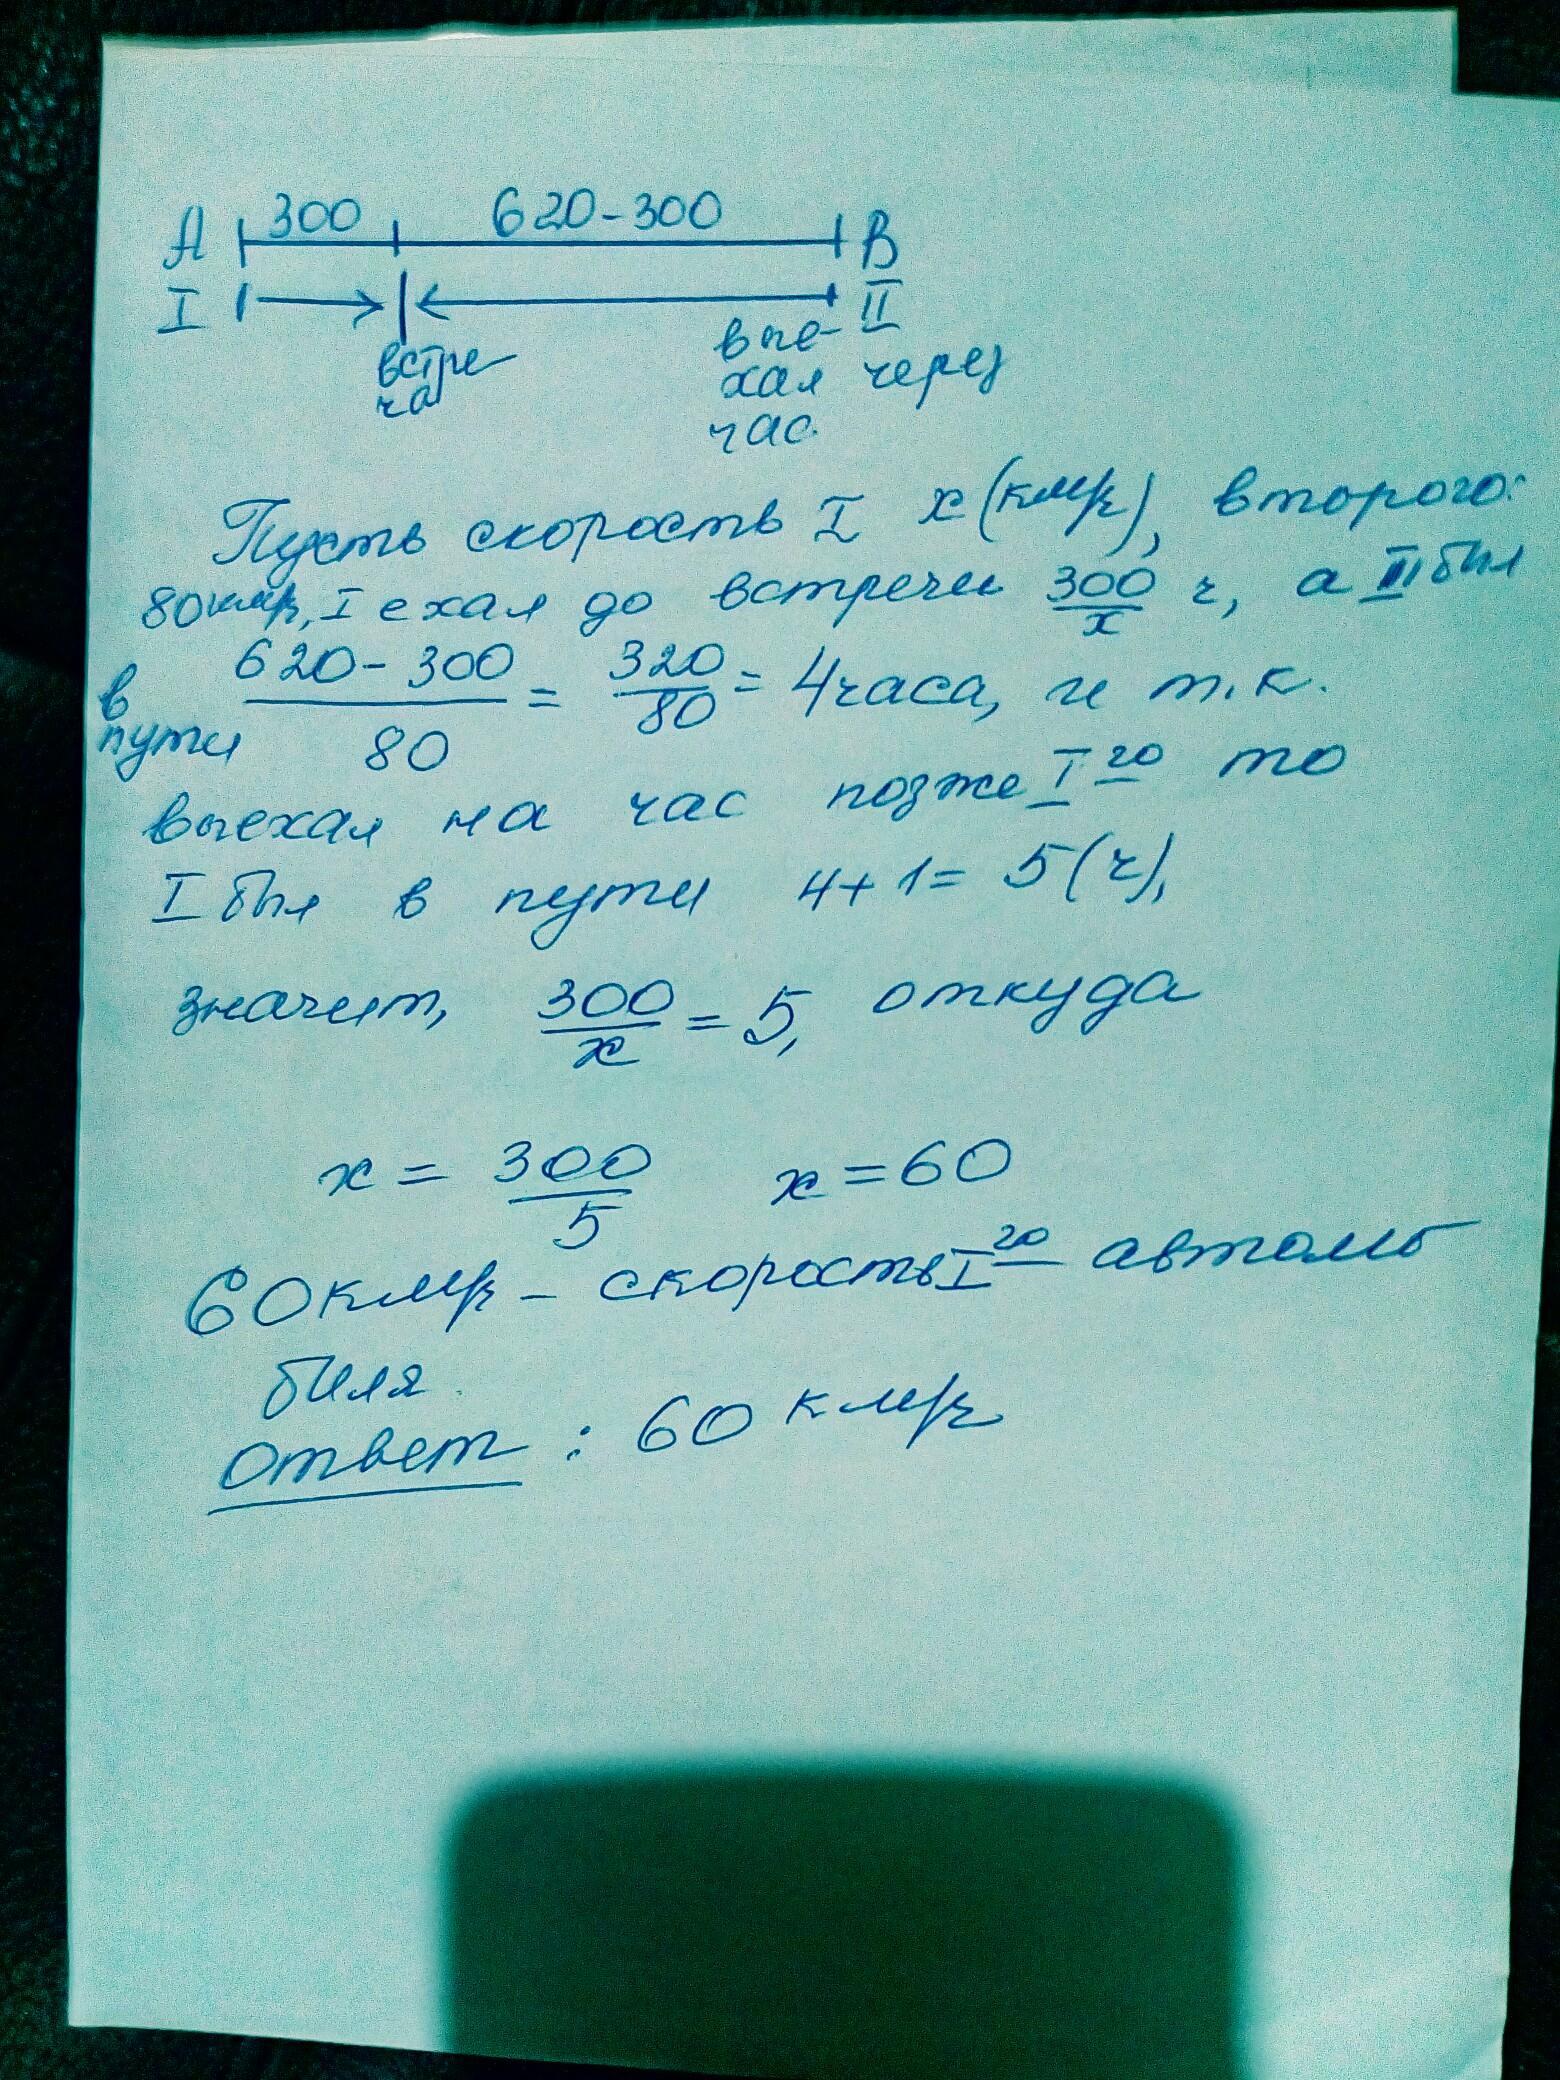 A 300 620-300 B
I II
встре
ча
вые-
хал через
час
Пусть скорость I x (км/ч), второго:
80км/ч, I ехал до встречи 300/x ч, а II был
в пути (620-300)/80 = 320/80 = 4часа, и т.к.
выехал на час позже I го то
I был в пути 4+1= 5(ч),
значит, 300/x = 5, откуда
x = 300/5 x=60
60км/ч - скорость I го автомо
биля
Ответ : 60 км/ч